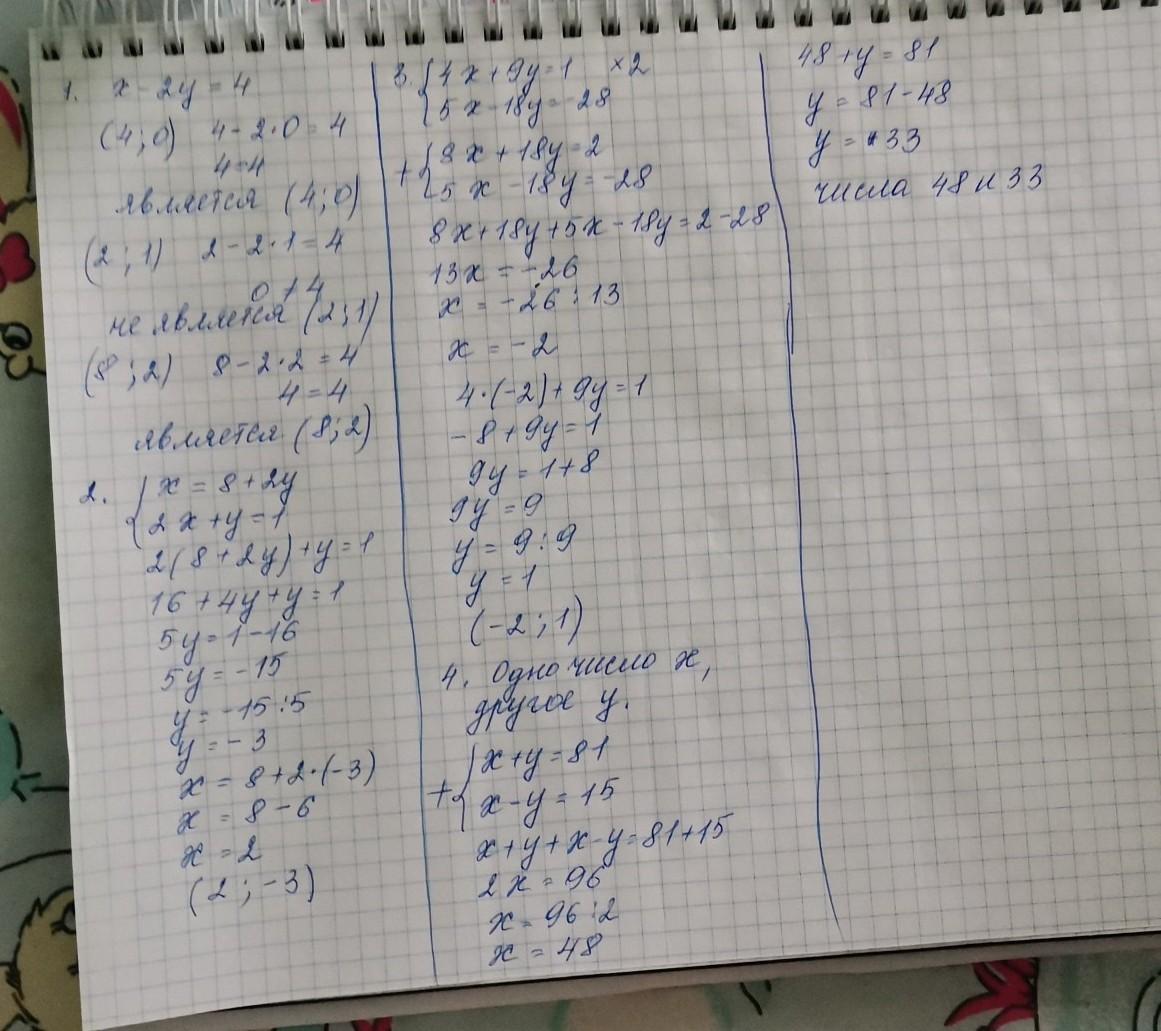 1. x - 2y = 4
(4; 0) 4 - 2·0 = 4
4=4
является (4; 0)
(2; 1) 2 - 2·1 = 4
0 ≠ 4
не является (2; 1)
(8; 2) 8 - 2·2 = 4
4 = 4
является (8; 2)
2. { x = 8 + 2y
2x + y = 1
2(8 + 2y) + y = 1
16 + 4y + y = 1
5y = 1 - 16
5y = -15
y = -15 : 5
y = -3
x = 8 + 2·(-3)
x = 8 - 6
x = 2
(2; -3)
3. { 4x + 9y = 1 ×2
5x - 18y = -28
+ { 8x + 18y = 2
5x - 18y = -28
8x + 18y + 5x - 18y = 2 - 28
13x = -26
x = -26 : 13
x = -2
4·(-2) + 9y = 1
-8 + 9y = 1
9y = 1 + 8
9y = 9
y = 9 : 9
y = 1
(-2; 1)
4. Одно число x,
другое y.
+ { x + y = 81
x - y = 15
x + y + x - y = 81 + 15
2x = 96
x = 96 : 2
x = 48
48 + y = 81
y = 81 - 48
y = 33
числа 48 и 33